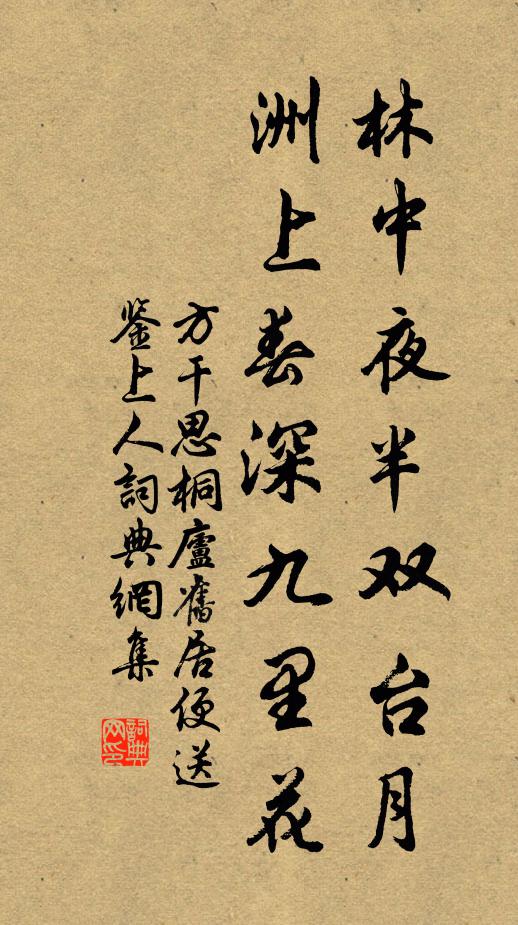 林中夜半双台月
洲上春深九里花
方干思桐廬舊居便送
鉴上人詞典網集
詞典
网印